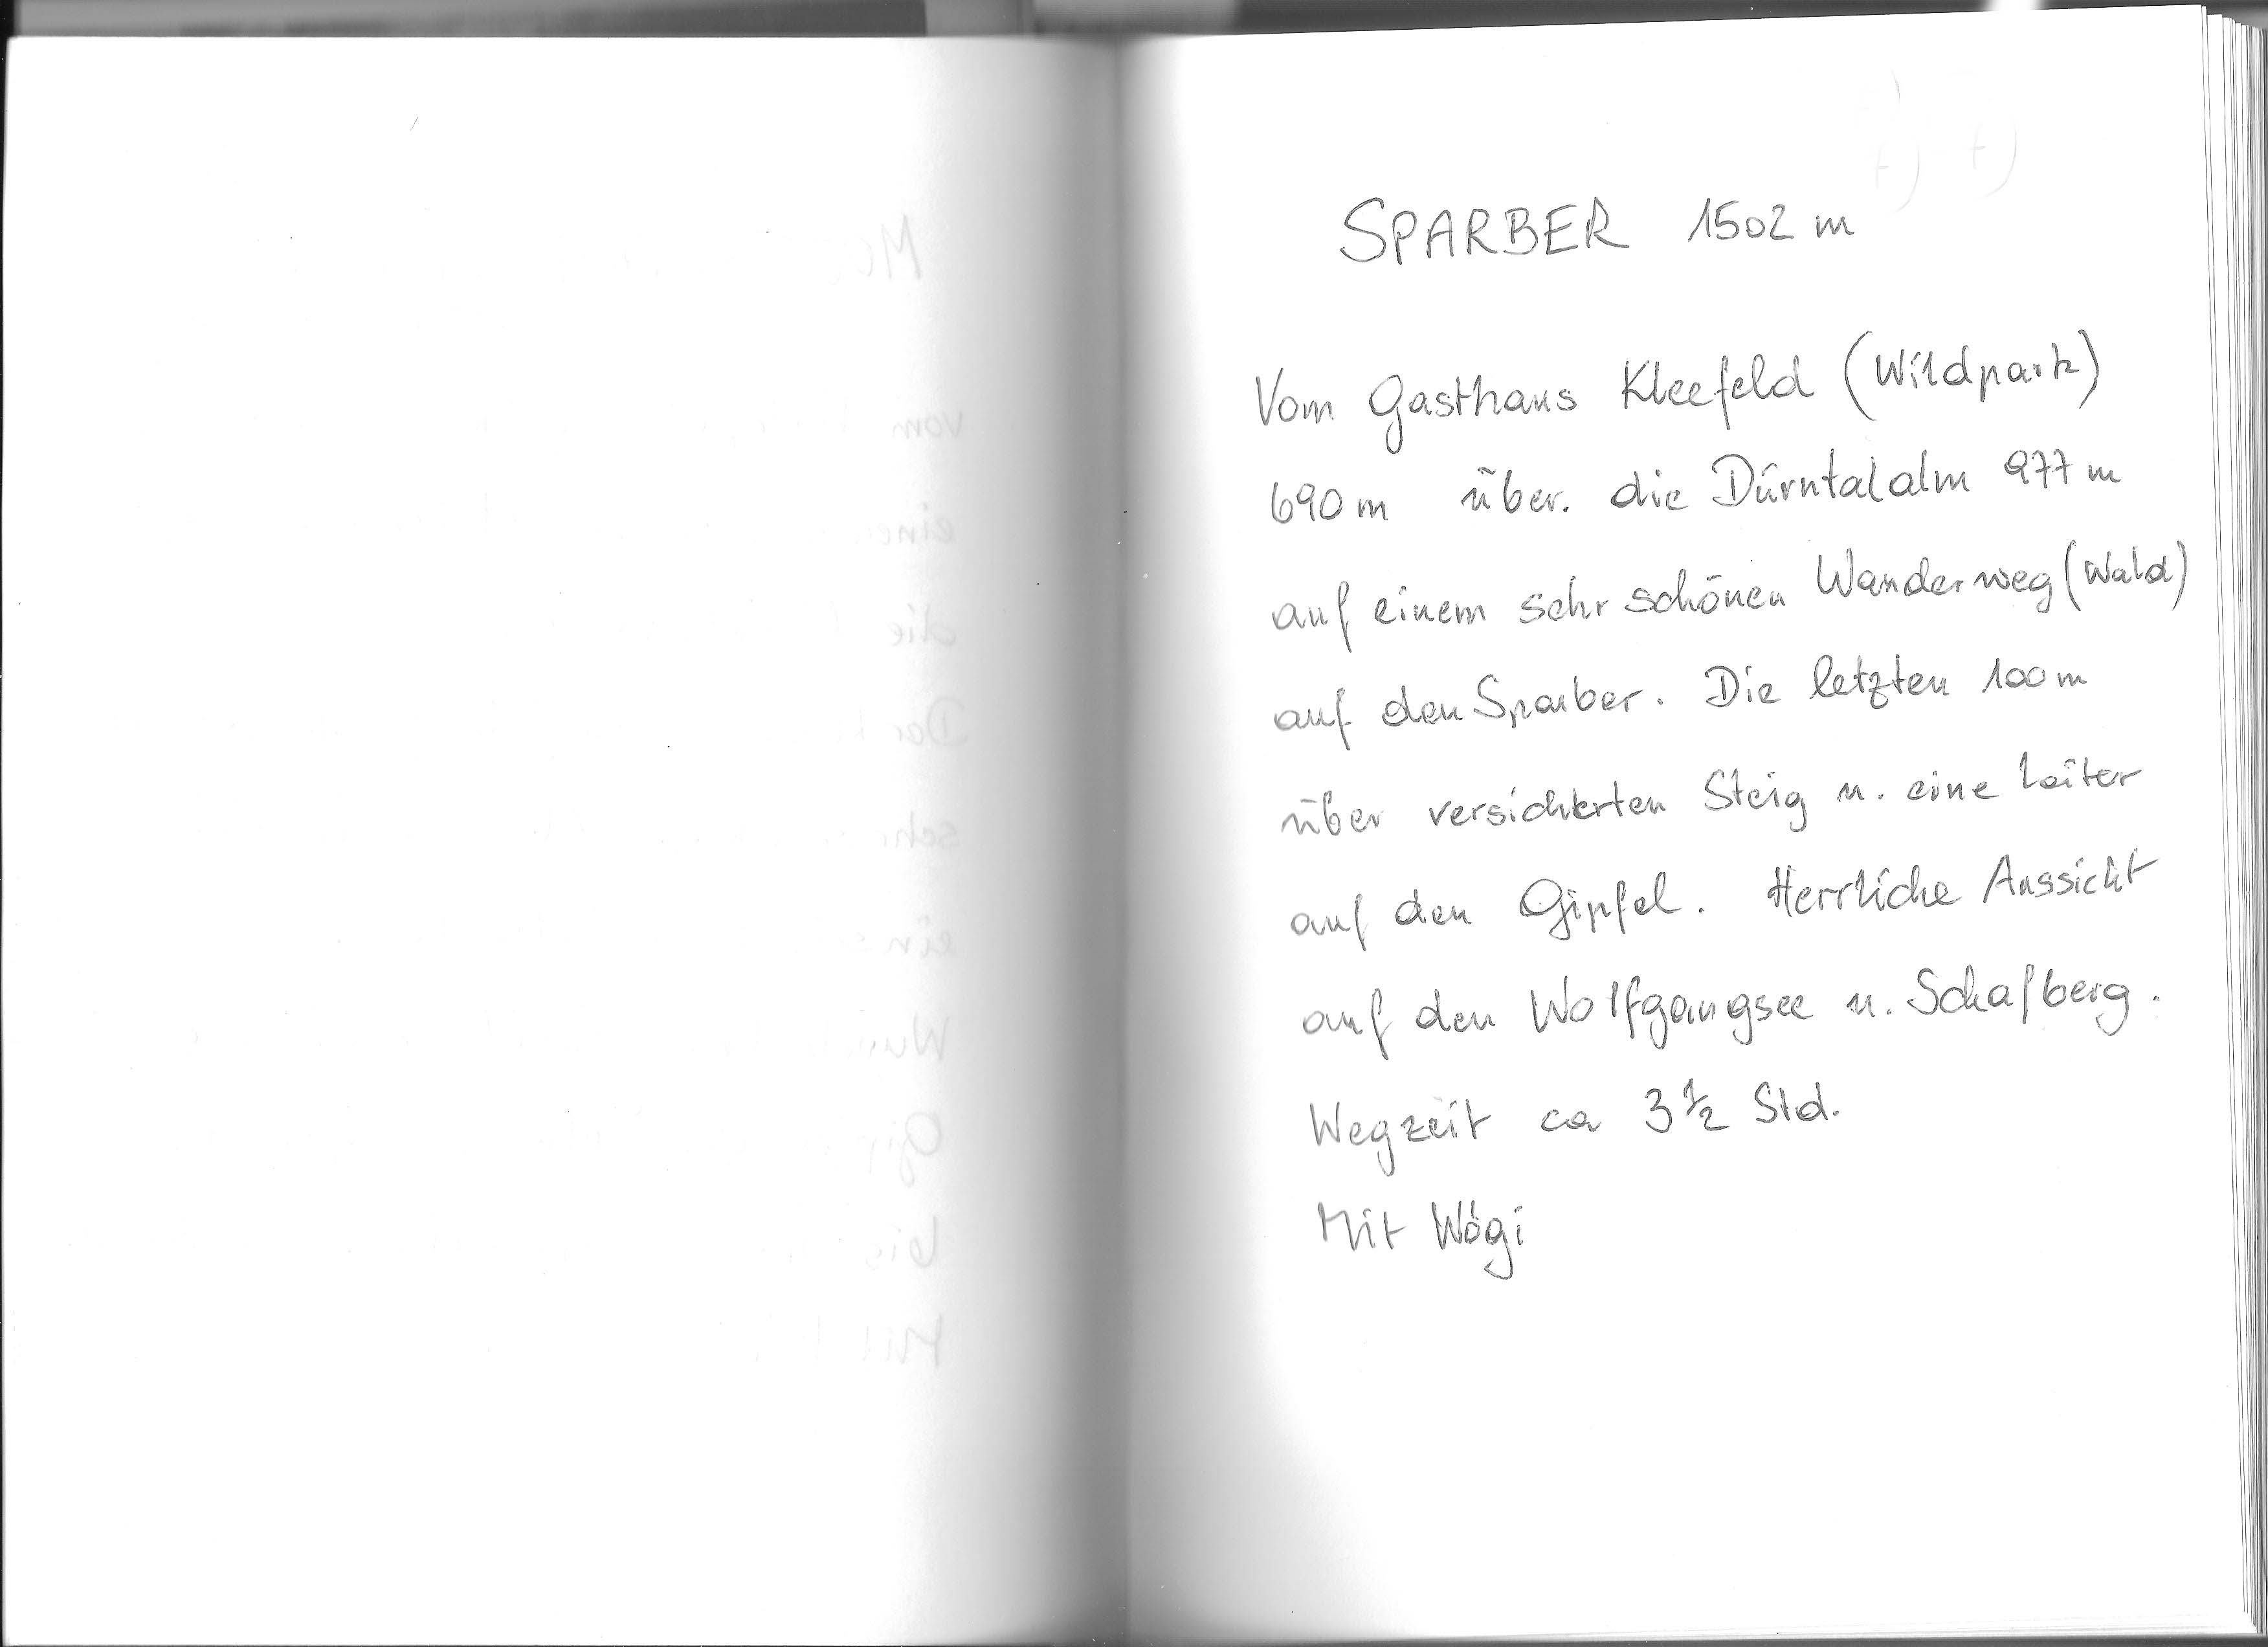 SPARBER 1502 m
Vom Gasthaus Kleefeld (Wildpark)
690 m über. die Dürntalalm 977 m
auf einem sehr schönen Wanderweg (Wald)
auf den Sparber. Die letzten 100 m
über versicherten Steig u. eine Leiter
auf den Gipfel. Herrliche Aussicht
auf den Wolfgangsee u. Schafberg.
Wegzeit ca 3 1/2 Std.
Mit Wögi